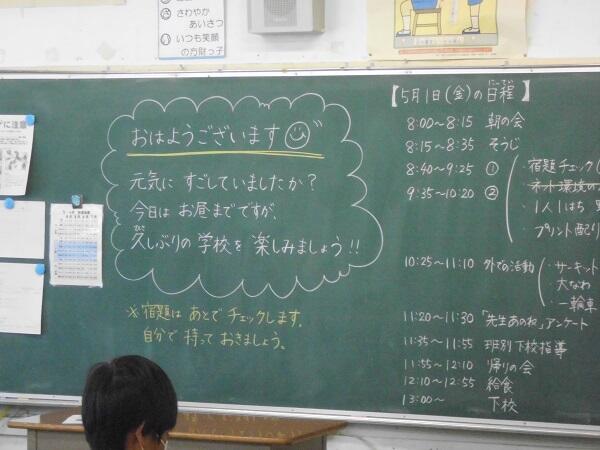 さわやか
あいさつ
いつも笑顔
の方財っ子
に注意
おはようございます
元気に すごしていましたか？
今日は お昼までですが、
久しぶりの 学校を 楽しみましょう!!
※宿題は あとで チェックします。
自分で 持って おきましょう。
【5月1日(金)の日程】
8:00〜8:15 朝の会
8:15〜8:35 そうじ
8:40〜9:25 ①
9:35〜10:20 ②
・宿題チェック
・ネット環境の
・1人1はち
・プリント配り
10:25〜11:10 外での活動
・サーキット
・大なわ
・一輪車
11:20〜11:30 「先生あのね」アンケート
11:35〜11:55 班別下校指導
11:55〜12:10 帰りの会
12:10〜12:55 給食
13:00〜 下校